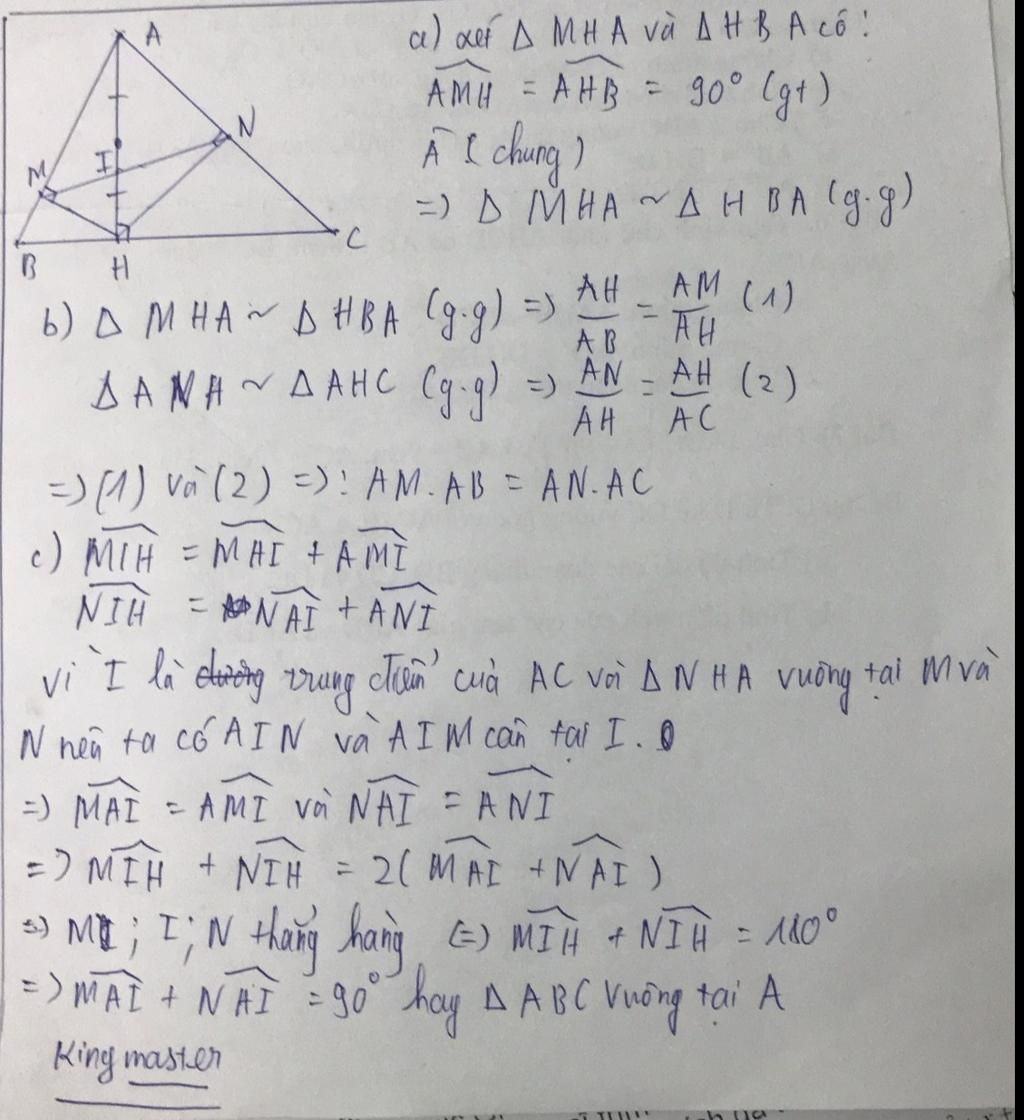 A
N
M
I
B
H
C
a) xét Δ MHA và Δ HBA có:
AMH = AHB = 90° (gt)
A ( chung )
=> Δ MHA ~ Δ HBA (g.g)
b) Δ MHA ~ Δ HBA (g.g) => AH/AB = AM/AH (1)
Δ ANH ~ Δ AHC (g.g) => AN/AH = AH/AC (2)
=> (1) và (2) =>: AM.AB = AN.AC
c) MIH = MAI + AMI
NIH = NAI + ANI
vì I là đường trung điểm của AC và Δ NHA vuông tại M và
N nên ta có AIN và AIM cân tại I.
=> MAI = AMI và NAI = ANI
=> MIH + NIH = 2( MAI + NAI )
=> M ; I ; N thẳng hàng (=) MIH + NIH = 180°
=> MAI + NAI = 90° hay Δ ABC vuông tại A
King master